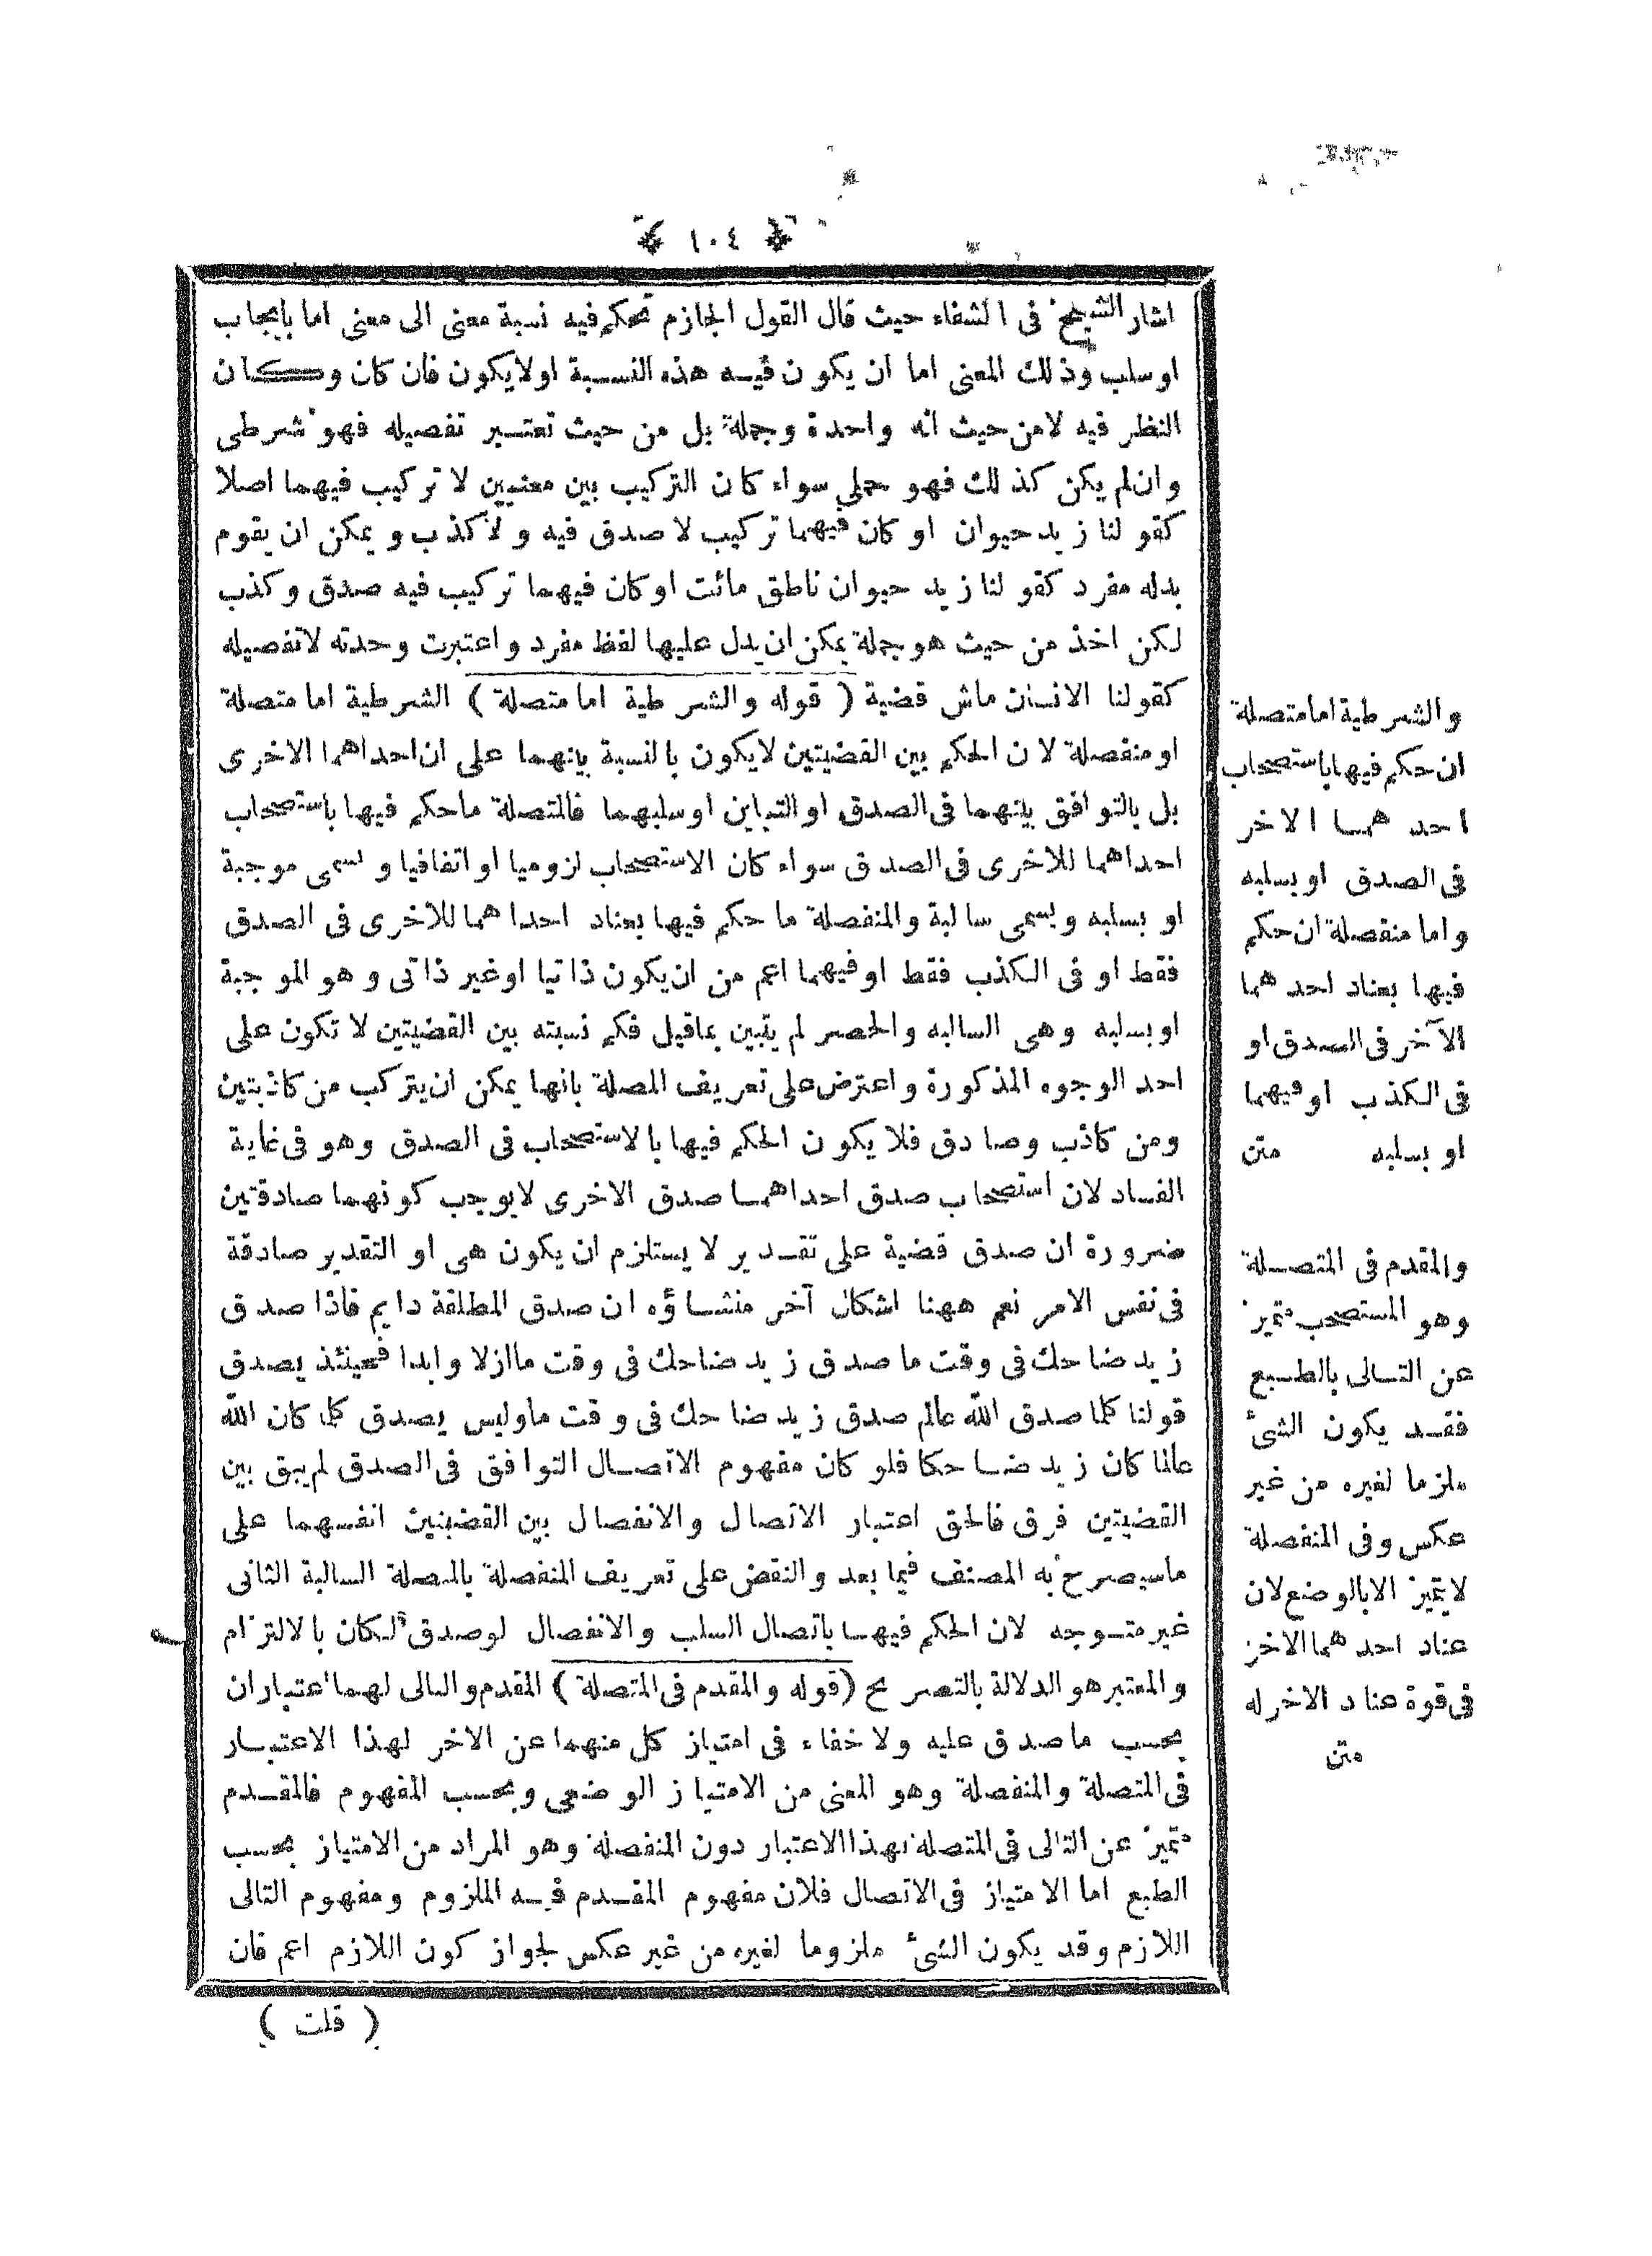 ﴿ ١٠٤ ﴾
اشار الشيخ فى الشفاء حيث قال القول الجازم يحكم فيه نسبة معنى الى معنى اما بايجاب
او سلب وذلك المعنى اما ان يكون فيه هذه النسبة اولايكون فان كان وكان
النظر فيه لامن حيث انه واحدة وجملة بل من حيث تعتبر تفصيله فهو شرطى
وان لم يكن كذلك فهو حملى سواء كان التركيب بين معنيين لا تركيب فيهما اصلا
كقولنا زيد حيوان او كان فيهما تركيب لا صدق فيه ولا كذب ويمكن ان يقوم
بدله مفرد كقولنا زيد حيوان ناطق مائت اوكان فيهما تركيب فيه صدق وكذب
لكن اخذ من حيث هو جملة يمكن ان يدل عليها لفظ مفرد واعتبرت وحدته لاتفصيله
كقولنا الانسان ماش قضية ( قوله والشرطية اما متصلة ) الشرطية اما متصلة
او منفصلة لان الحكم بين القضيتين لايكون بالنسبة بينهما على ان احداهما الاخرى
بل بالتوافق بينهما فى الصدق او التباين اوسلبهما فالمتصلة ماحكم فيها باستصحاب
احداهما للاخرى فى الصدق سواء كان الاستصحاب لزوميا او اتفاقيا وتسمى موجبة
او بسلبه ويسمى سالبة والمنفصلة ما حكم فيها بعناد احداهما للاخرى فى الصدق
فقط او فى الكذب فقط او فيهما اعم من ان يكون ذاتيا اوغير ذاتى وهو الموجبة
او بسلبه وهى السالبه والحصر لم يتبين بماقيل فكم نسبته بين القضيتين لا تكون على
احد الوجوه المذكورة واعترض على تعريف المصلة بانها يمكن ان يتركب من كاذبتين
ومن كاذب وصادق فلا يكون الحكم فيها بالاستصحاب فى الصدق وهو فى غاية
الفساد لان استصحاب صدق احداهما صدق الاخرى لايوجب كونهما صادقتين
ضرورة ان صدق قضية على تقدير لا يستلزم ان يكون هى او التقدير صادقة
فى نفس الامر نعم ههنا اشكال آخر منشاؤه ان صدق المطلقة دايم فاذا صدق
زيد ضاحك فى وقت ما صدق زيد ضاحك فى وقت ماازلا وابدا فحينئذ يصدق
قولنا كلما صدق الله عالم صدق زيد ضاحك فى وقت ماوليس يصدق كلما كان الله
عالما كان زيد ضاحكا فلو كان مفهوم الاتصال التوافق فى الصدق لم يبق بين
القضيتين فرق فالحق اعتبار الاتصال والانفصال بين القضيتين انفسهما على
ماسيصرح به المصنف فيما بعد والنقض على تعريف المنفصلة بالمتصلة السالبة الثانى
غير متوجه لان الحكم فيها باتصال السلب والانفصال لوصدق لكان بالالتزام
والمعتبر هو الدلالة بالتصريح (قوله والمقدم فى المتصلة ) المقدم والتالى لهما اعتباران
بحسب ماصدق عليه ولا خفاء فى امتياز كل منهما عن الاخر لهذا الاعتبار
فى المتصلة والمنفصلة وهو المعنى من الامتياز الوضعى وبحسب المفهوم فالمقدم
متميز عن التالى فى المتصلة بهذا الاعتبار دون المنفصلة وهو المراد من الامتياز بحسب
الطبع اما الامتياز فى الاتصال فلان مفهوم المقدم فيه الملزوم ومفهوم التالى
اللازم وقد يكون الشئ ملزوما لغيره من غير عكس لجواز كون اللازم اعم فان
( قلت )
والشرطية اما متصلة
ان حكم فيها باستصحاب
احد هما الاخر
فى الصدق او بسلبه
واما منفصلة ان حكم
فيها بعناد احد هما
الآخر فى الصدق او
فى الكذب او فيهما
او بسلبه متن
والمقدم فى المتصلة
وهو المستصحب متميز
عن التالى بالطبع
فقد يكون الشئ
ملزما لغيره من غير
عكس وفى المنفصلة
لا يتميز الا بالوضع لان
عناد احد هما الاخر
فى قوة عناد الاخر له
متن